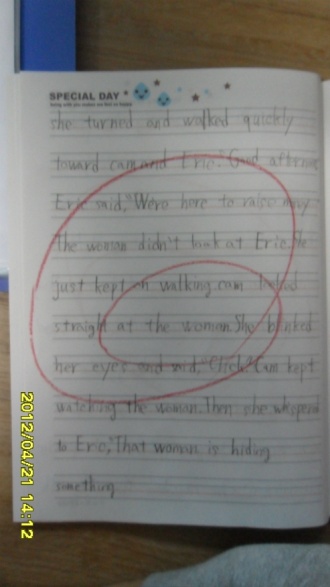 SPECIAL DAY
she turned and walked quickly
toward cam and Eric." Good afternoon
Eric said, "We're here to raise
The woman didn't look at Eric. She
just kept on walking. cam looked
straight at the woman. She blinked
her eyes and said, "Click." Cam kept
watching the woman. Then she whisperd
to Eric, "That woman is hiding
something
2012/04/21 14:12